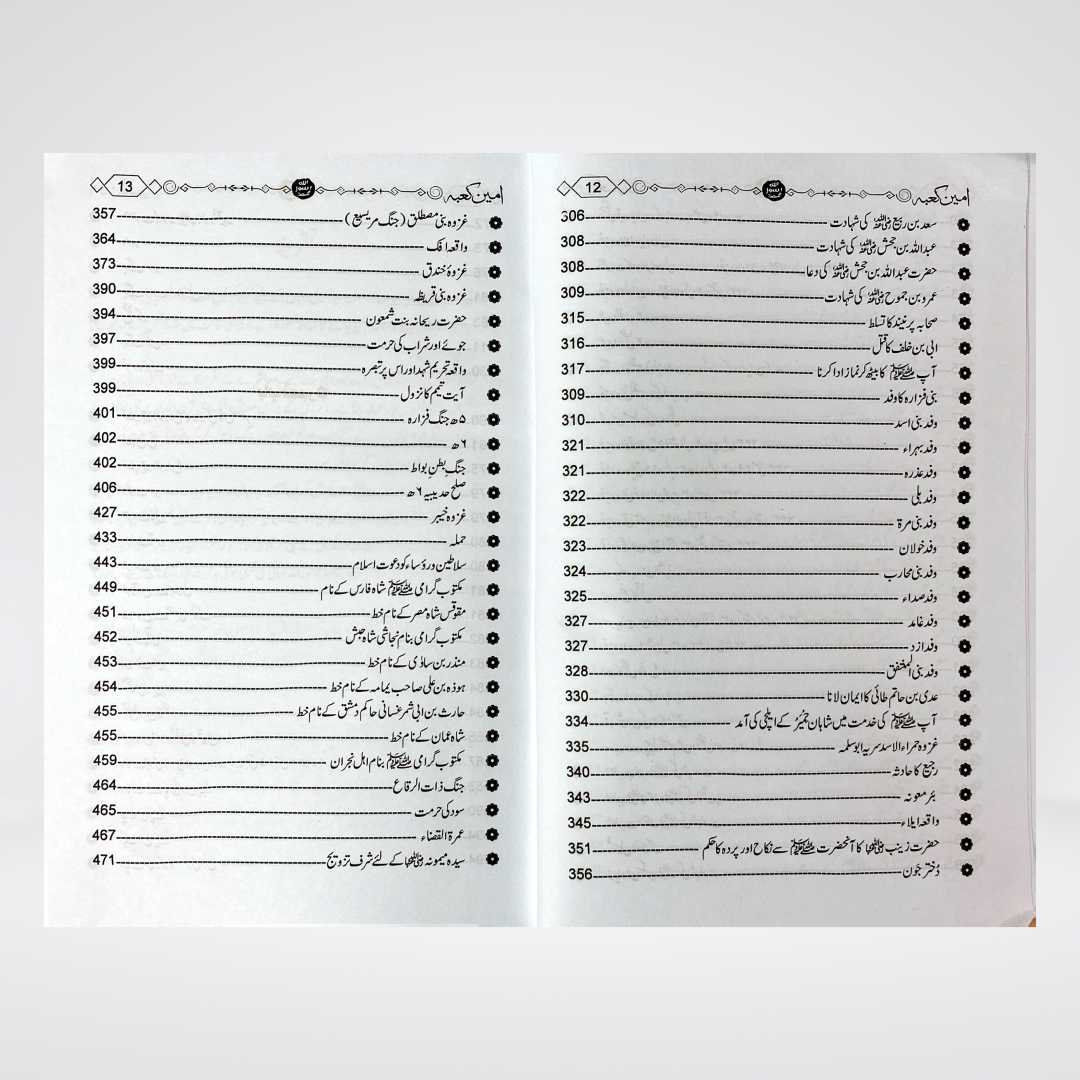 امین کعبہ 12
سعد بن ربیع رضی اللہ عنہ کی شہادت 306
عبداللہ بن جحش رضی اللہ عنہ کی شہادت 308
حضرت عبداللہ بن جحش رضی اللہ عنہ کی دعا 308
عمرو بن جموح رضی اللہ عنہ کی شہادت 309
صحابہ پر نیند کا تسلط 315
ابی بن خلف کا قتل 316
آپ ﷺ کا بیٹھ کر نماز ادا کرنا 317
بنی فزارہ کا وفد 309
وفد بنی اسد 310
وفد بہراء 321
وفد عذرہ 321
وفد بلی 322
وفد بنی مرۃ 322
وفد خولان 323
وفد بنی محارب 324
وفد صداء 325
وفد غامد 327
وفد ازد 327
وفد بنی المنتفق 328
عدی بن حاتم طائی کا ایمان لانا 330
آپ ﷺ کی خدمت میں شاہان حِمْیَرْ کے ایلچی کی آمد 334
غزوہ حمراء الاسد سریہ ابو سلمہ 335
رجیع کا حادثہ 340
بئر معونہ 343
واقعہ ایلاء 345
حضرت زینب رضی اللہ عنہا کا آنحضرت ﷺ سے نکاح اور پردہ کا حکم 351
دُختر جون 356
امین کعبہ 13
غزوہ بنی مصطلق (جنگ مریسیع) 357
واقعہ افک 364
غزوۂ خندق 373
غزوہ بنی قریظہ 390
حضرت ریحانہ بنت شمعون 394
جوئے اور شراب کی حرمت 397
واقعہ تحریم شہد اور اس پر تبصرہ 399
آیت تیمم کا نزول 399
۵ھ جنگ فزارہ 401
۶ھ 402
جنگ بطن بواط 402
صلح حدیبیہ ۶ھ 406
غزوہ خیبر 427
حملہ 433
سلاطین و رؤساء کو دعوت اسلام 443
مکتوب گرامی ﷺ شاہ فارس کے نام 449
مقوقس شاہ مصر کے نام خط 451
مکتوب گرامی بنام نجاشی شاہ حبش 452
منذر بن ساوٰی کے نام خط 453
ہوذہ بن علی صاحب یمامہ کے نام خط 454
حارث بن ابی شمر غسانی حاکم دمشق کے نام خط 455
شاہ عمان کے نام خط 455
مکتوب گرامی ﷺ بنام اہل نجران 459
جنگ ذات الرقاع 464
سود کی حرمت 465
عمرۃ القضاء 467
سیدہ میمونہ رضی اللہ عنہا کے لئے شرف تزویج 471